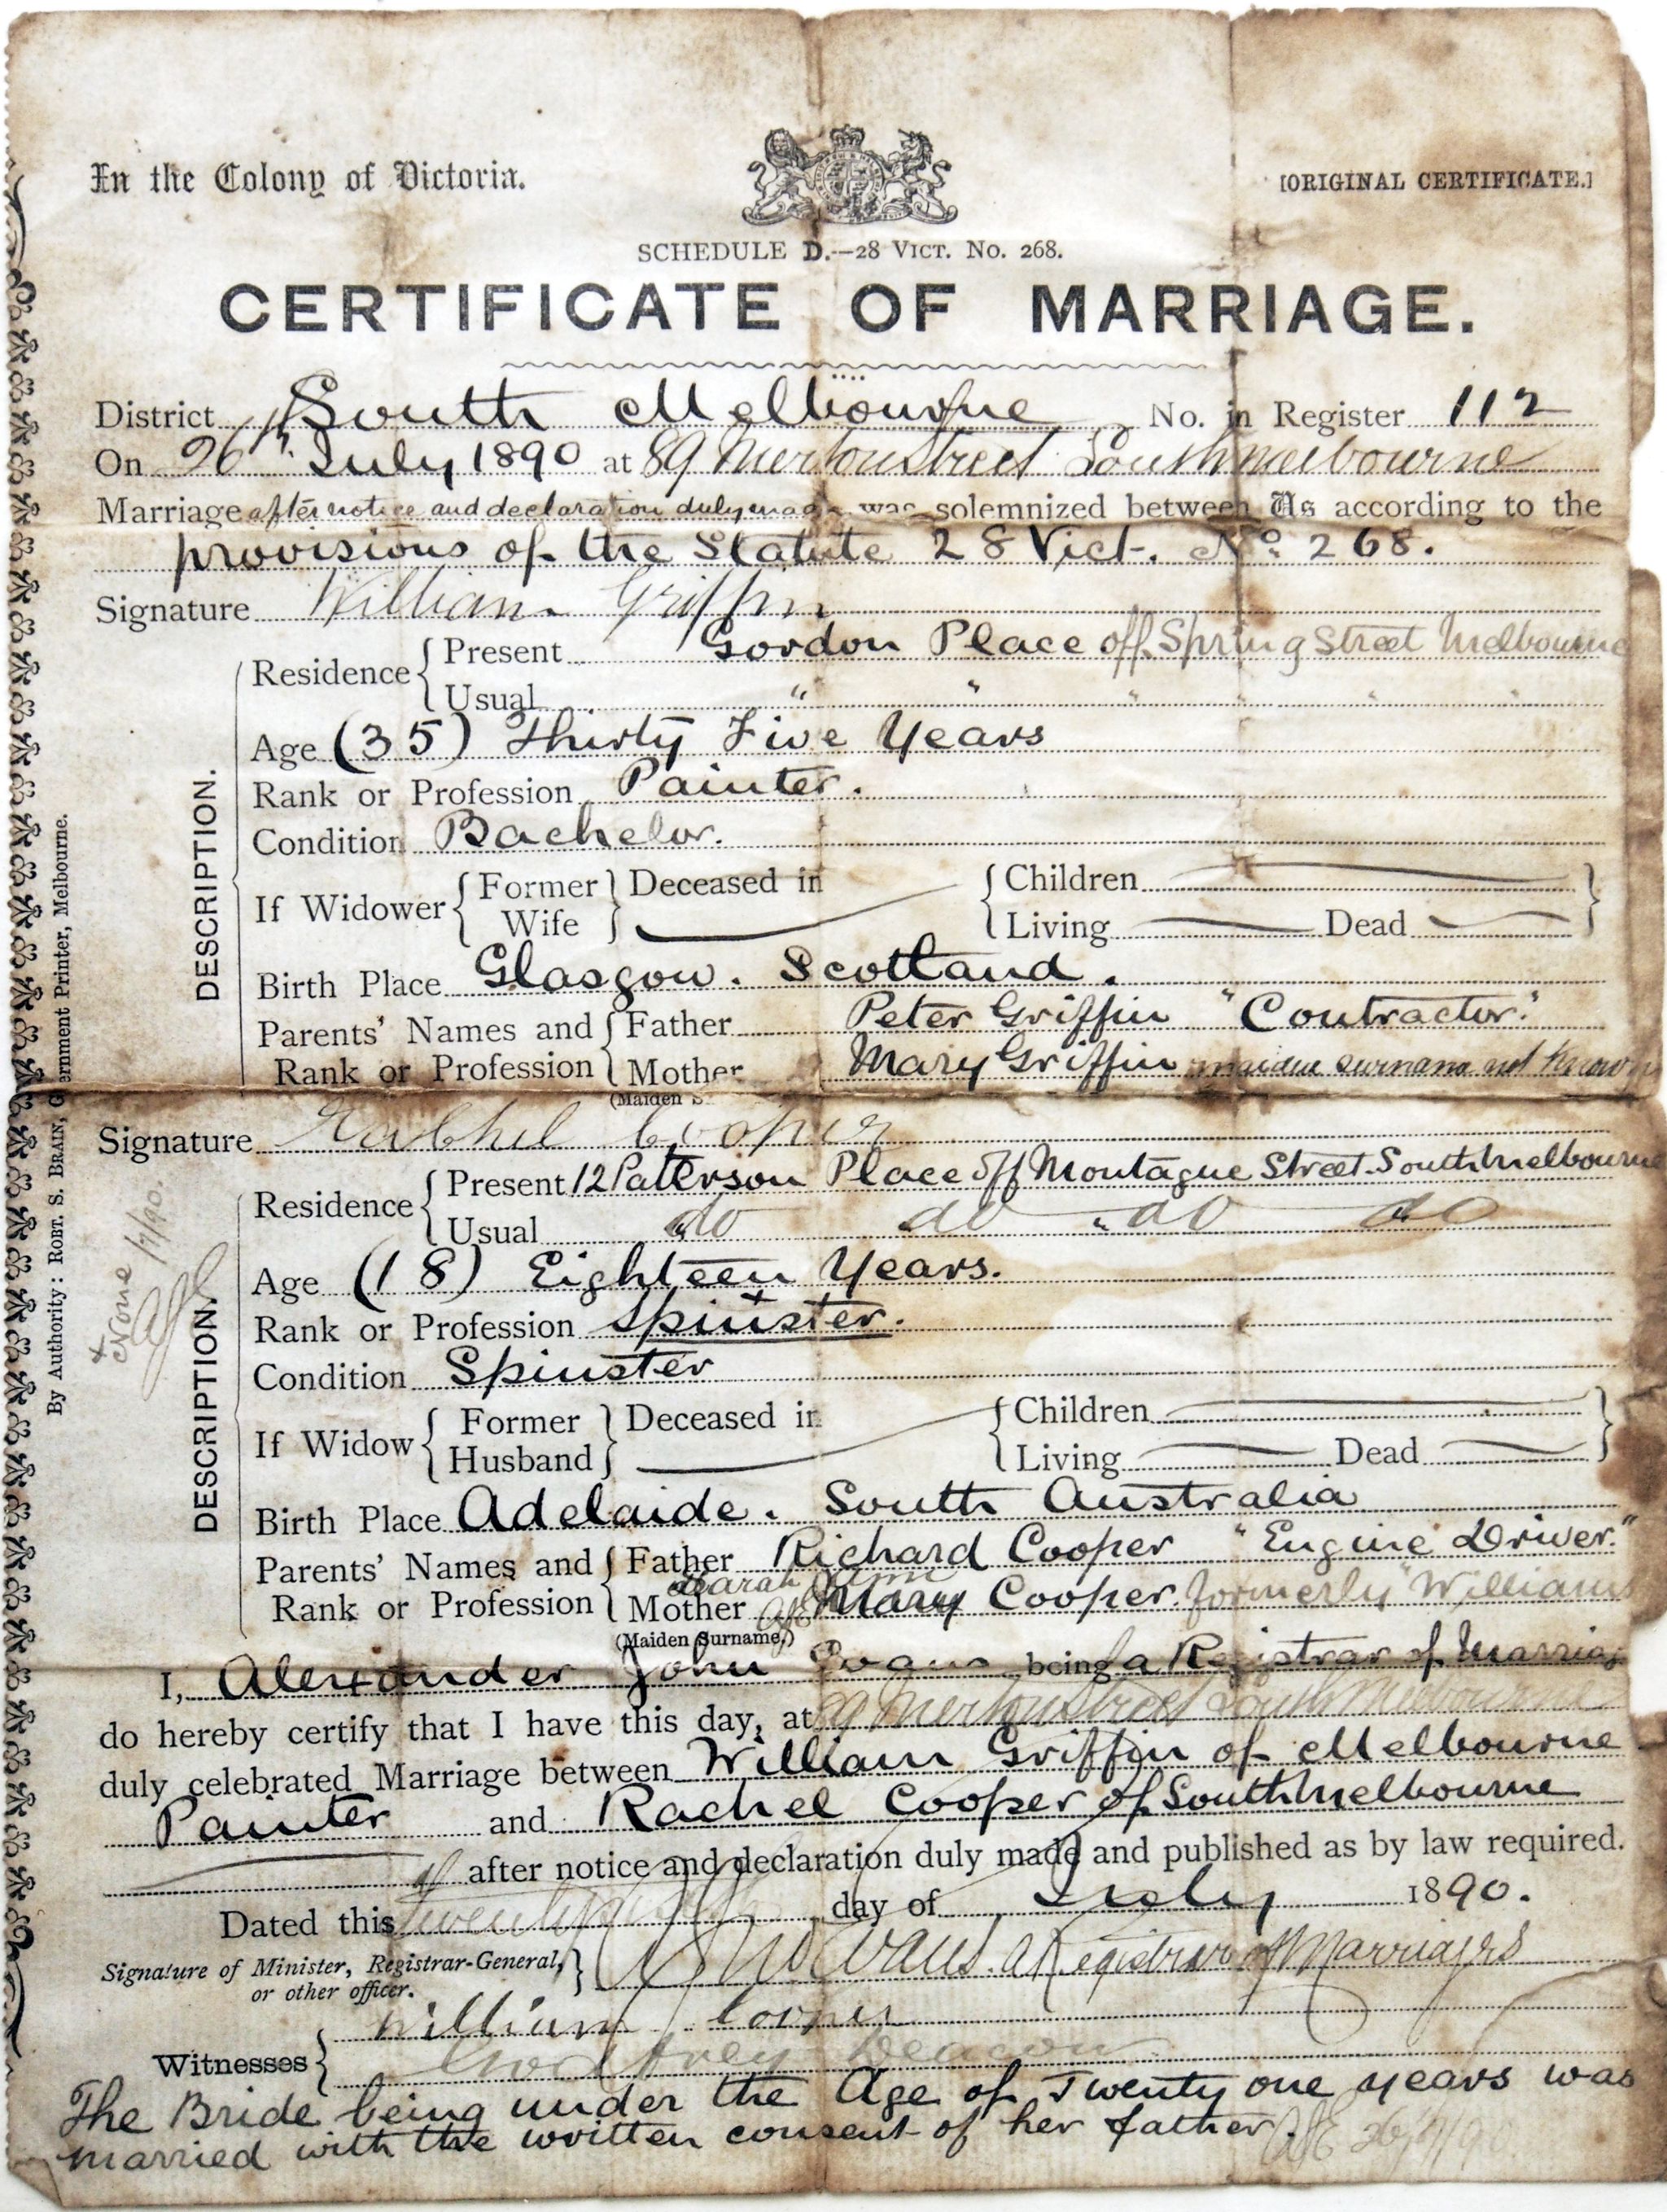 In the Colony of Victoria.
[ORIGINAL CERTIFICATE.]
SCHEDULE D.—28 VICT. No. 268.
CERTIFICATE OF MARRIAGE.
District South Melbourne No. in Register 112
On 26th July 1890 at 89 Merton Street South Melbourne
Marriage after notice and declaration duly made was solemnized between Us according to the
provisions of the Statute 28 Vict. No. 268.
Signature William Griffin
DESCRIPTION.
Residence Present Gordon Place off Spring Street Melbourne
Usual " " " " " "
Age (35) Thirty Five Years
Rank or Profession Painter.
Condition Bachelor.
If Widower Former Wife Deceased in Children
Living Dead
Birth Place Glasgow. Scotland.
Parents' Names and Rank or Profession Father Peter Griffin "Contractor."
Mother Mary Griffin maiden surname not known
(Maiden S
Signature Rachel Cooper
DESCRIPTION.
Residence Present 12 Patterson Place off Montague Street South Melbourne
Usual do do do do
Age (18) Eighteen Years.
Rank or Profession Spinster.
+
Condition Spinster
If Widow Former Husband Deceased in Children
Living Dead
Birth Place Adelaide. South Australia
Parents' Names and Rank or Profession Father Richard Cooper "Engine Driver."
Sarah Ann
Mother AJE Mary Cooper formerly "Williams
(Maiden Surname.)
I, Alexander John Evans being a Registrar of Marriag
do hereby certify that I have this day, at 89 Merton Street South Melbourne
duly celebrated Marriage between William Griffin of Melbourne
Painter and Rachel Cooper of South Melbourne
after notice and declaration duly made and published as by law required.
Dated this day of July 1890.
Signature of Minister, Registrar-General, or other officer. AJ Evans. a Registrar of Marriages
Witnesses William
Godfrey Deacon
The Bride being under the Age of Twenty one years was
married with the written consent of her father. AJE 26/7/90
By Authority: ROBT. S. BRAIN, G ernment Printer, Melbourne.
+ None /7/90.
AJE